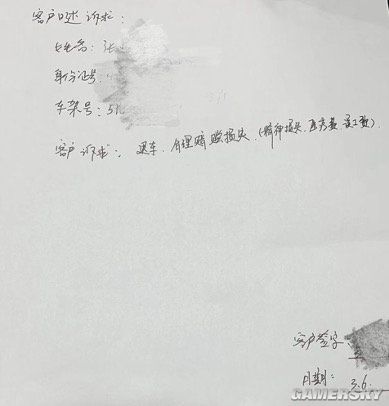 客户口述诉求：
姓名：张
身份证号：
车架号：5h
客户诉求：退车、合理赔偿损失、(精神损失、医疗费 误工费)
客户签字：
日期：3.6.
GAMERSKY